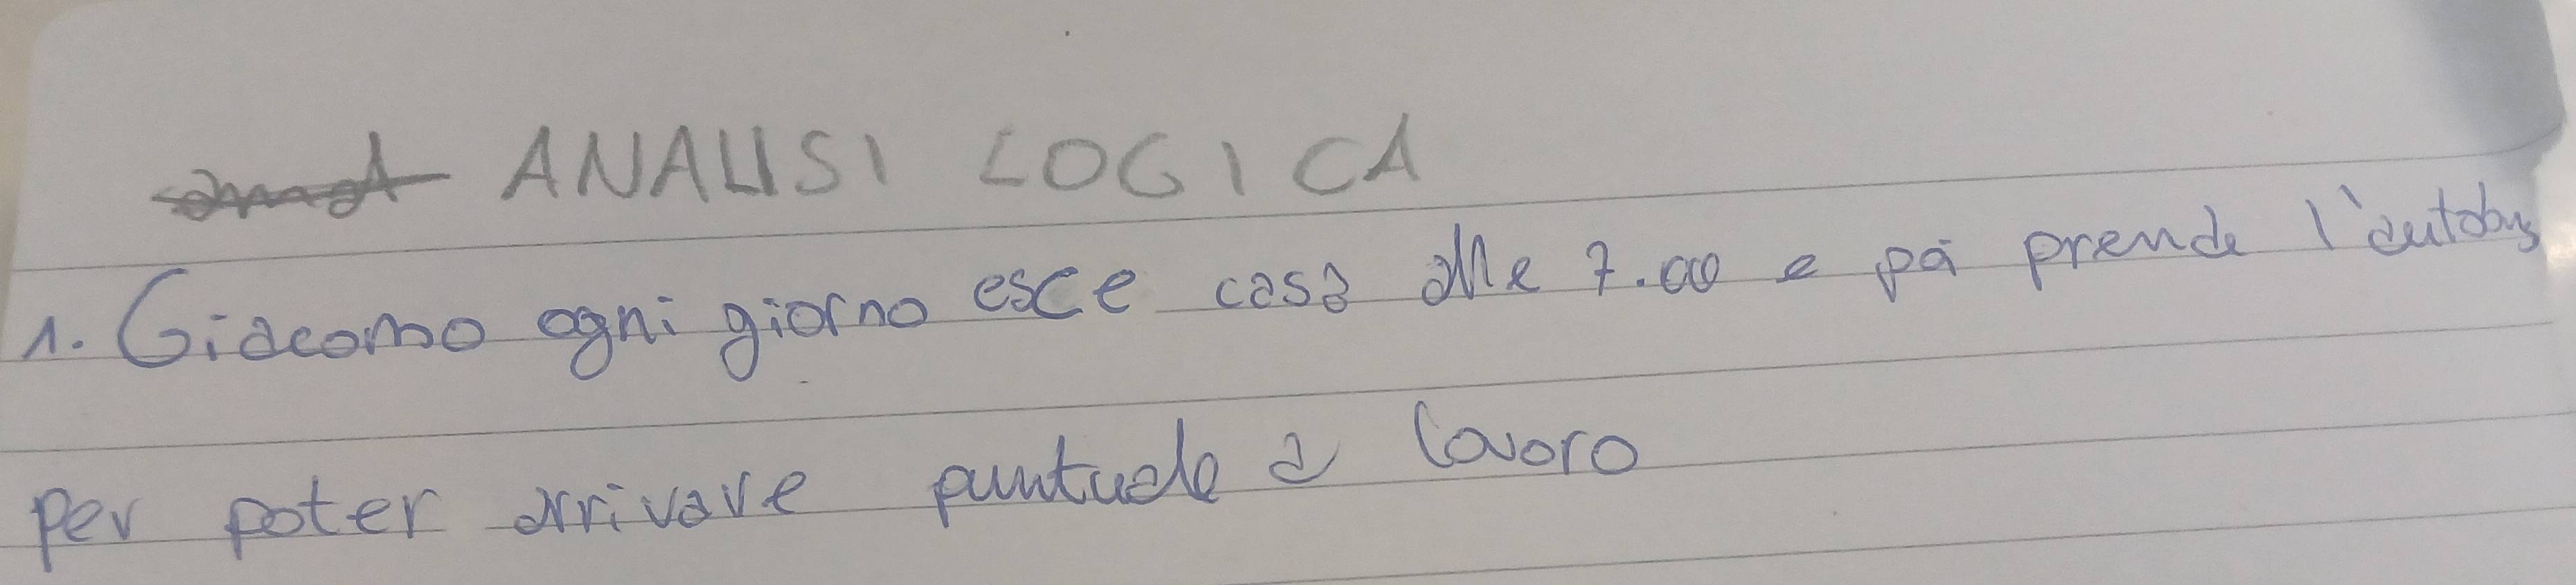 ANALISI LOGICA
1. Giacomo ogni giorno esce casa alle 7.00 e poi prende l'autobus
per poter arrivare puntuale a lavoro